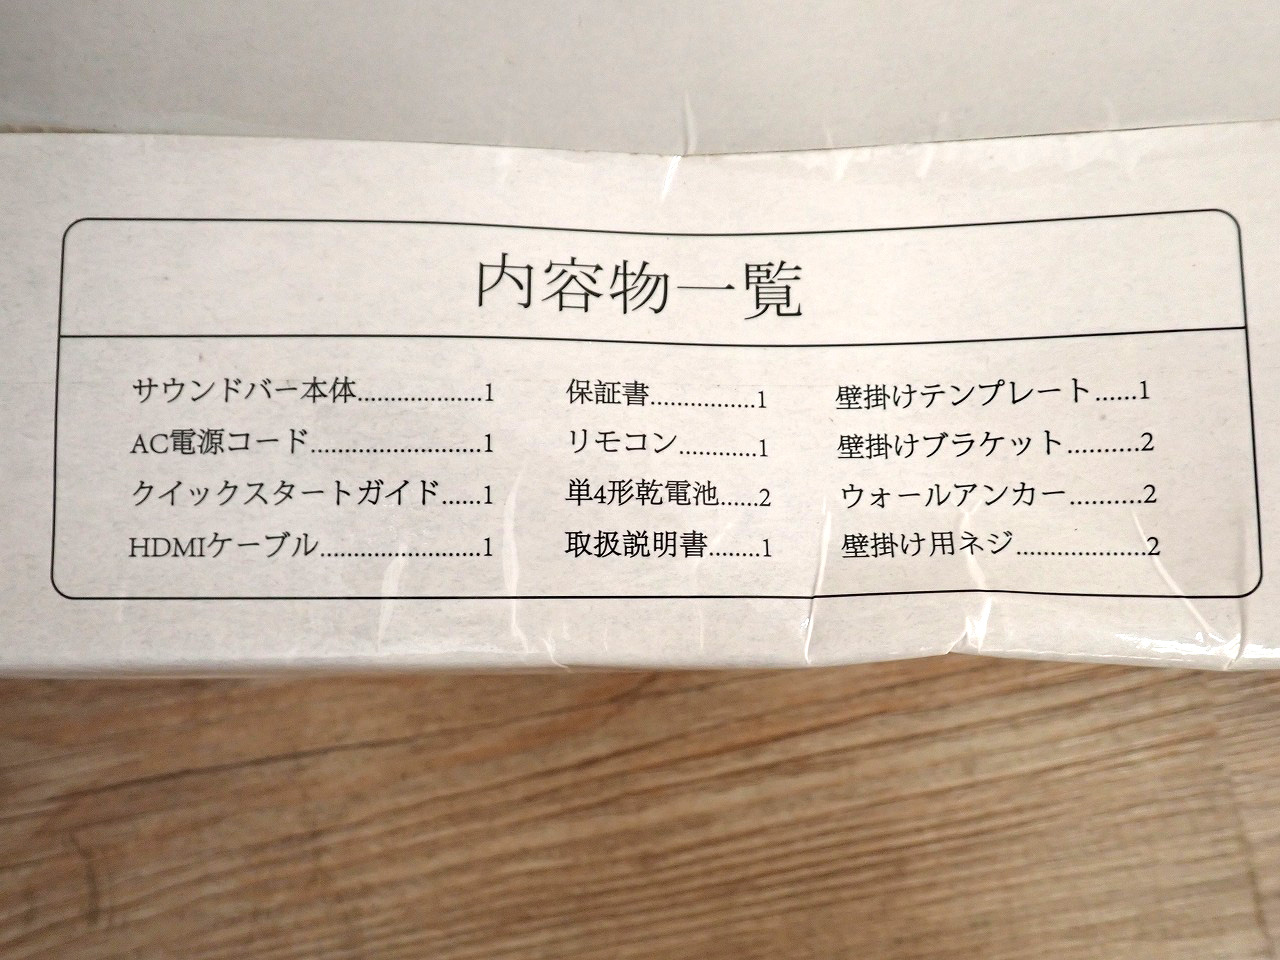 内容物一覧
サウンドバー本体...................1
AC電源コード..........................1
クイックスタートガイド......1
HDMIケーブル.........................1
保証書................1
リモコン............1
単4形乾電池......2
取扱説明書........1
壁掛けテンプレート......1
壁掛けブラケット..........2
ウォールアンカー..........2
壁掛け用ネジ....................2